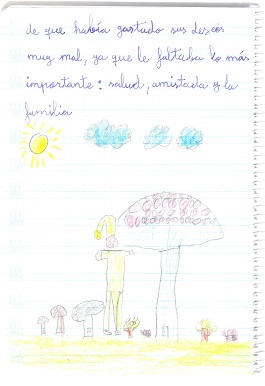 de que había gastado sus deseos
muy mal, ya que le faltaba lo más
importante: salud, amistada y la
familia